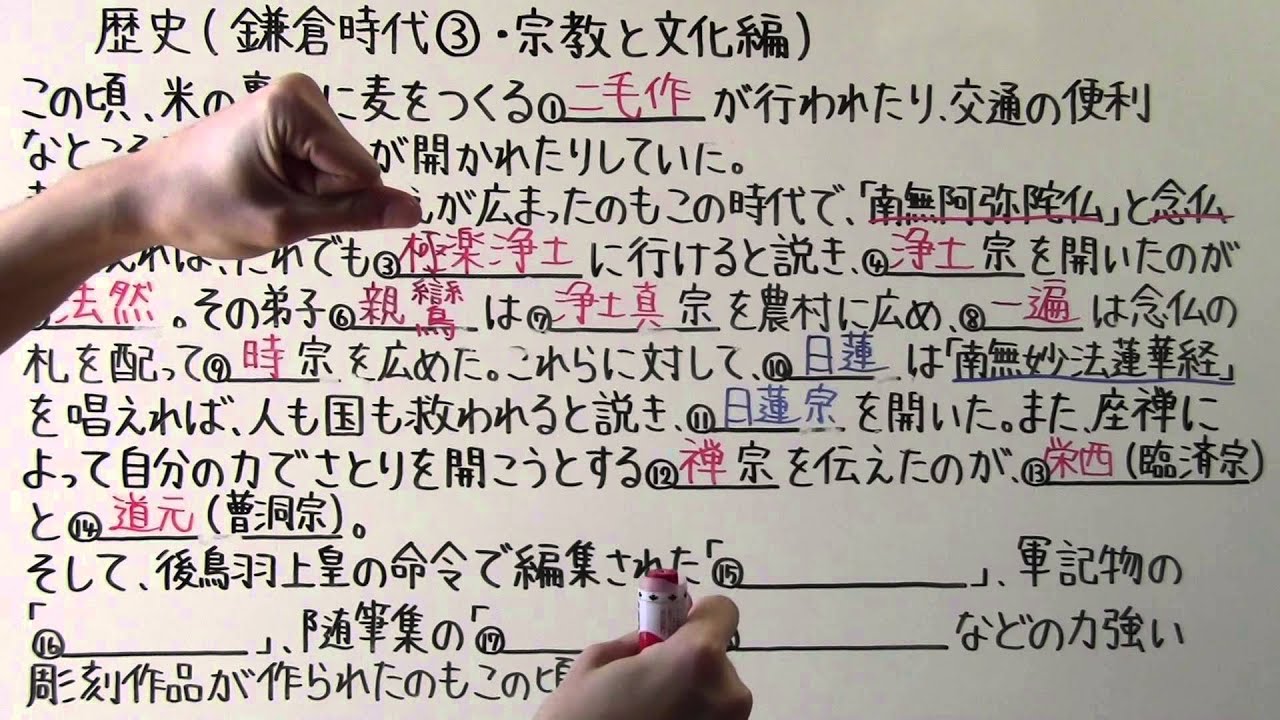 歴史(鎌倉時代③・宗教と文化編)
この頃、米の裏に麦をつくる①二毛作が行われたり、交通の便利
なところ が開かれたりしていた。
が広まったのもこの時代で、「南無阿弥陀仏」と念仏
えれば、だれでも③極楽浄土に行けると説き、④浄土宗を開いたのが
法然。その弟子⑥親鸞は⑦浄土真宗を農村に広め、⑧一遍は念仏の
札を配って⑨時宗を広めた。これらに対して、⑩日蓮は「南無妙法蓮華経」
を唱えれば、人も国も救われると説き、⑪日蓮宗を開いた。また、座禅に
よって自分の力でさとりを開こうとする⑫禅宗を伝えたのが、⑬栄西(臨済宗)
と⑭道元(曹洞宗)。
そして、後鳥羽上皇の命令で編集された「⑮ 」、軍記物の
「⑯ 」、随筆集の「⑰ などの力強い
彫刻作品が作られたのもこの頃